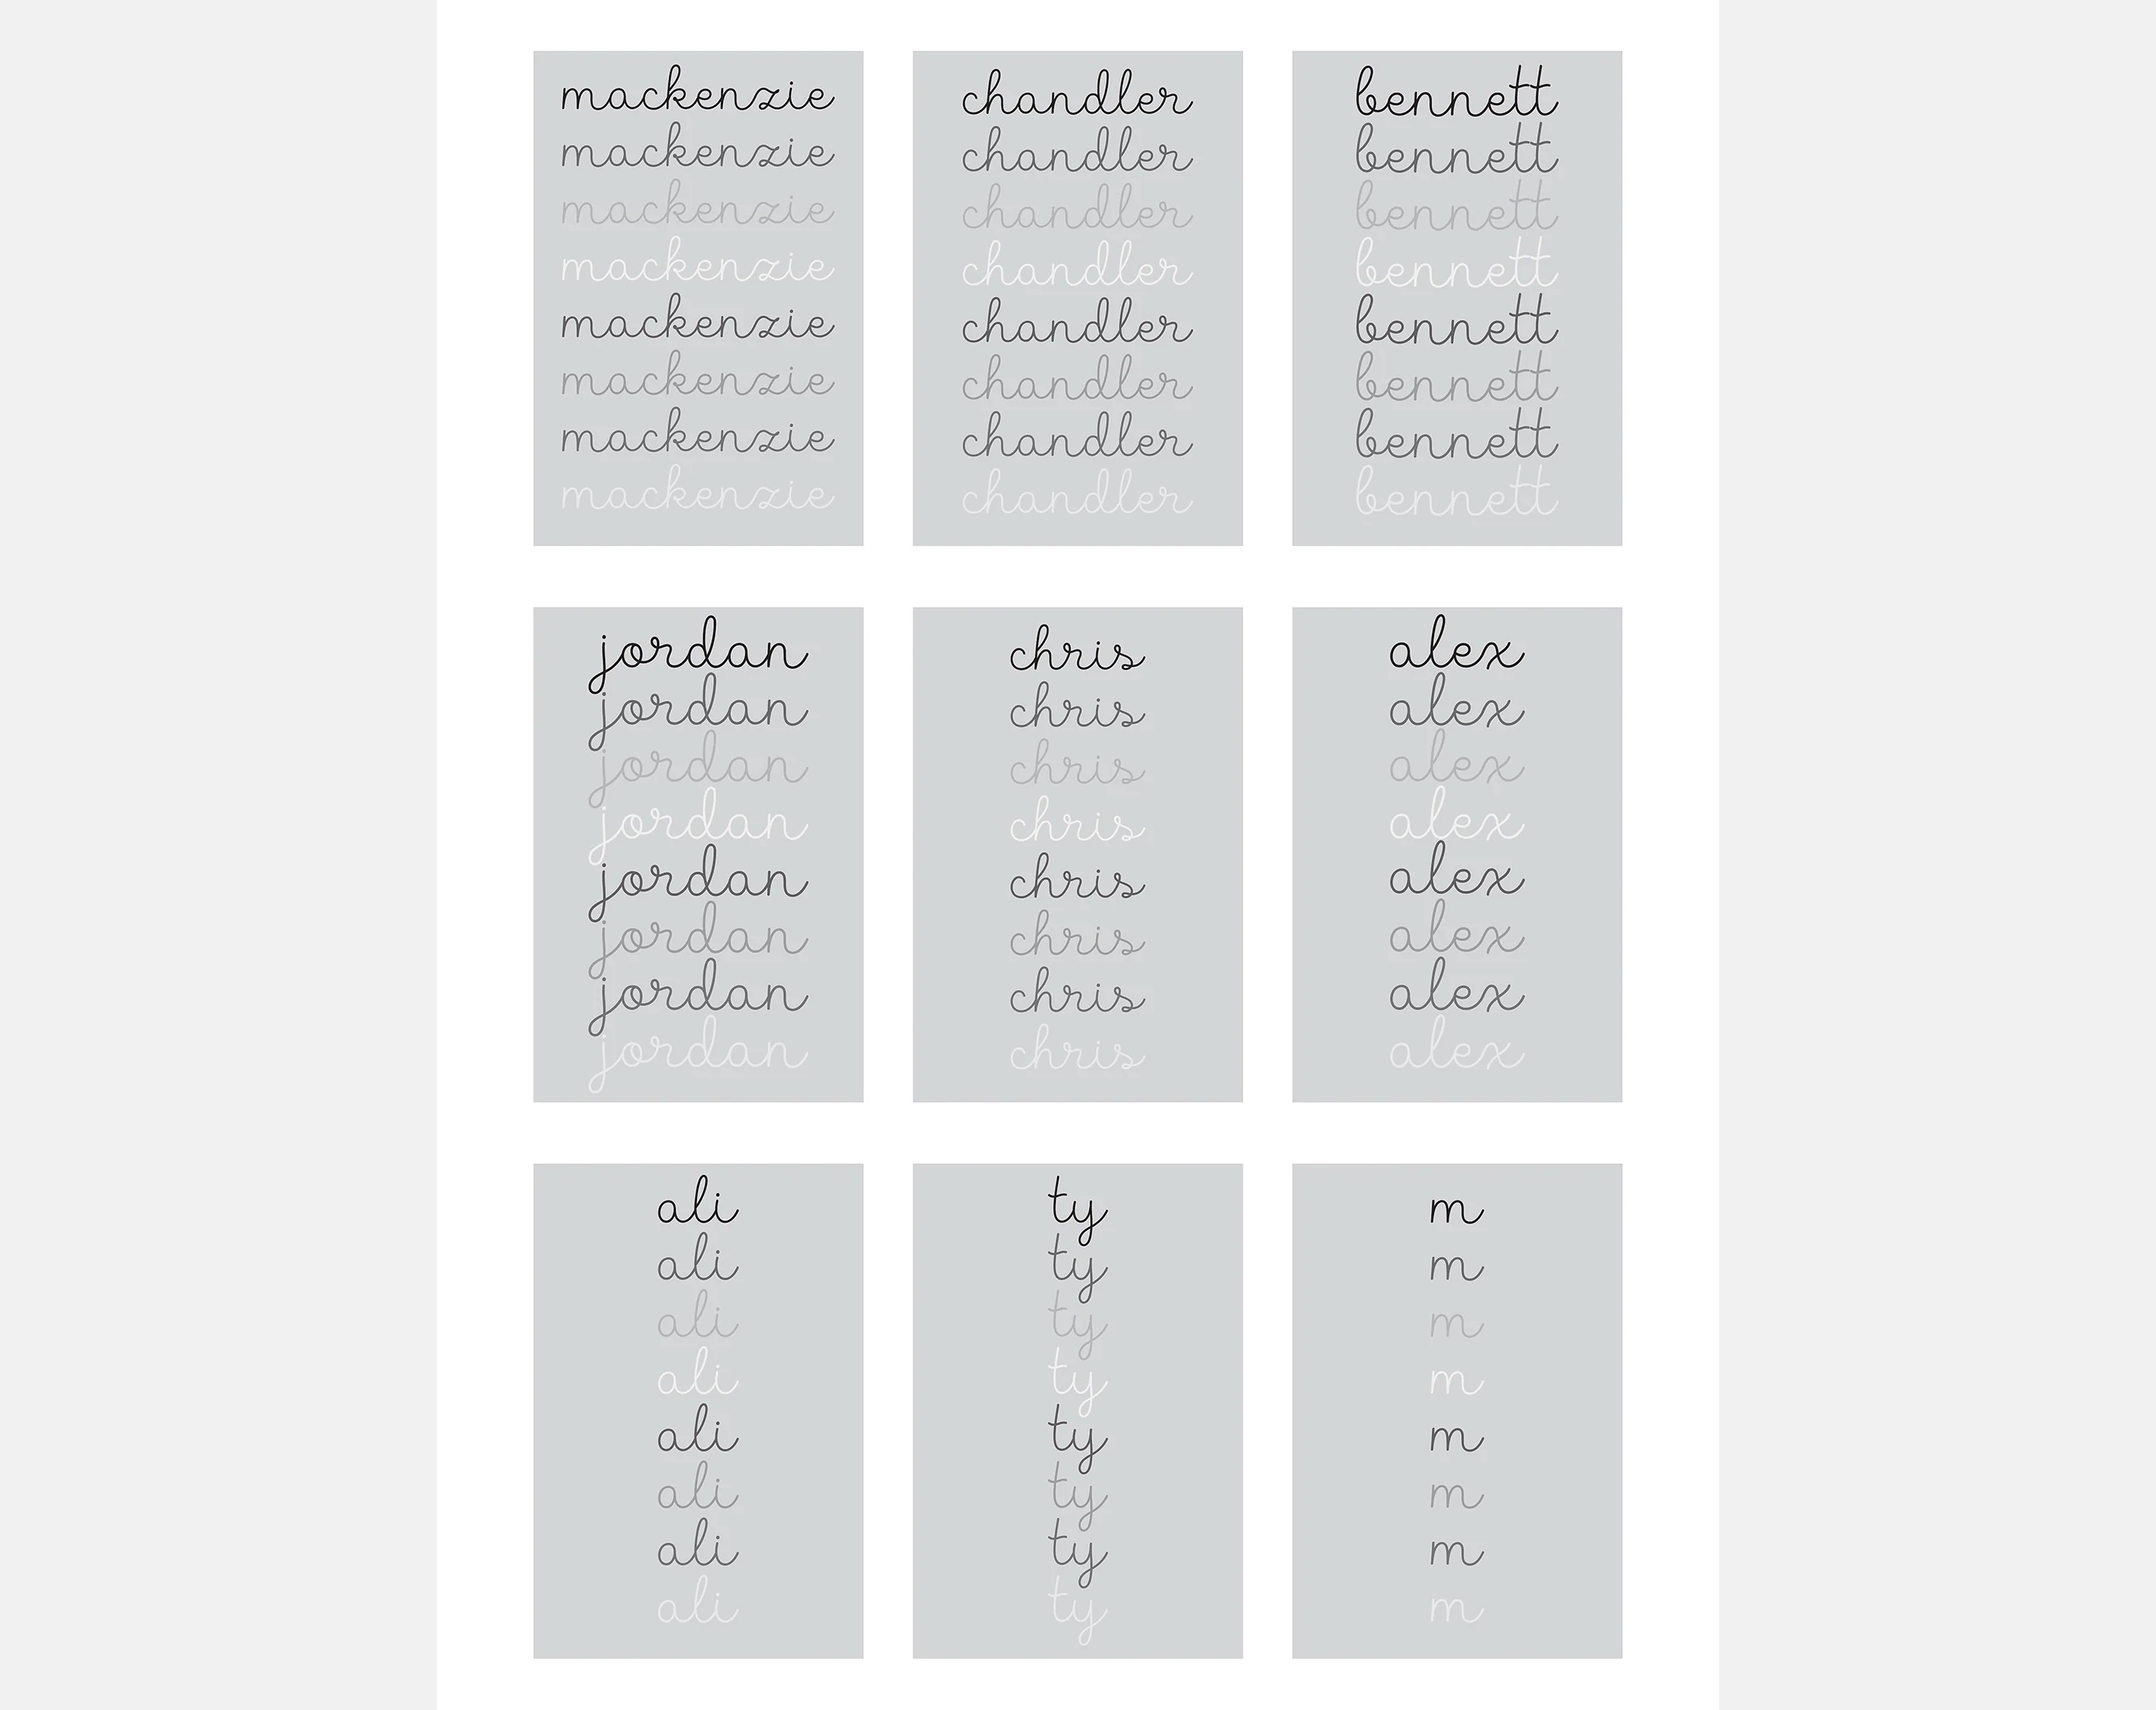 mackenzie
mackenzie
mackenzie
mackenzie
mackenzie
mackenzie
mackenzie
mackenzie
chandler
chandler
chandler
chandler
chandler
chandler
chandler
chandler
bennett
bennett
bennett
bennett
bennett
bennett
bennett
bennett
jordan
jordan
jordan
jordan
jordan
jordan
jordan
jordan
chris
chris
chris
chris
chris
chris
chris
chris
alex
alex
alex
alex
alex
alex
alex
alex
ali
ali
ali
ali
ali
ali
ali
ali
ty
ty
ty
ty
ty
ty
ty
ty
m
m
m
m
m
m
m
m